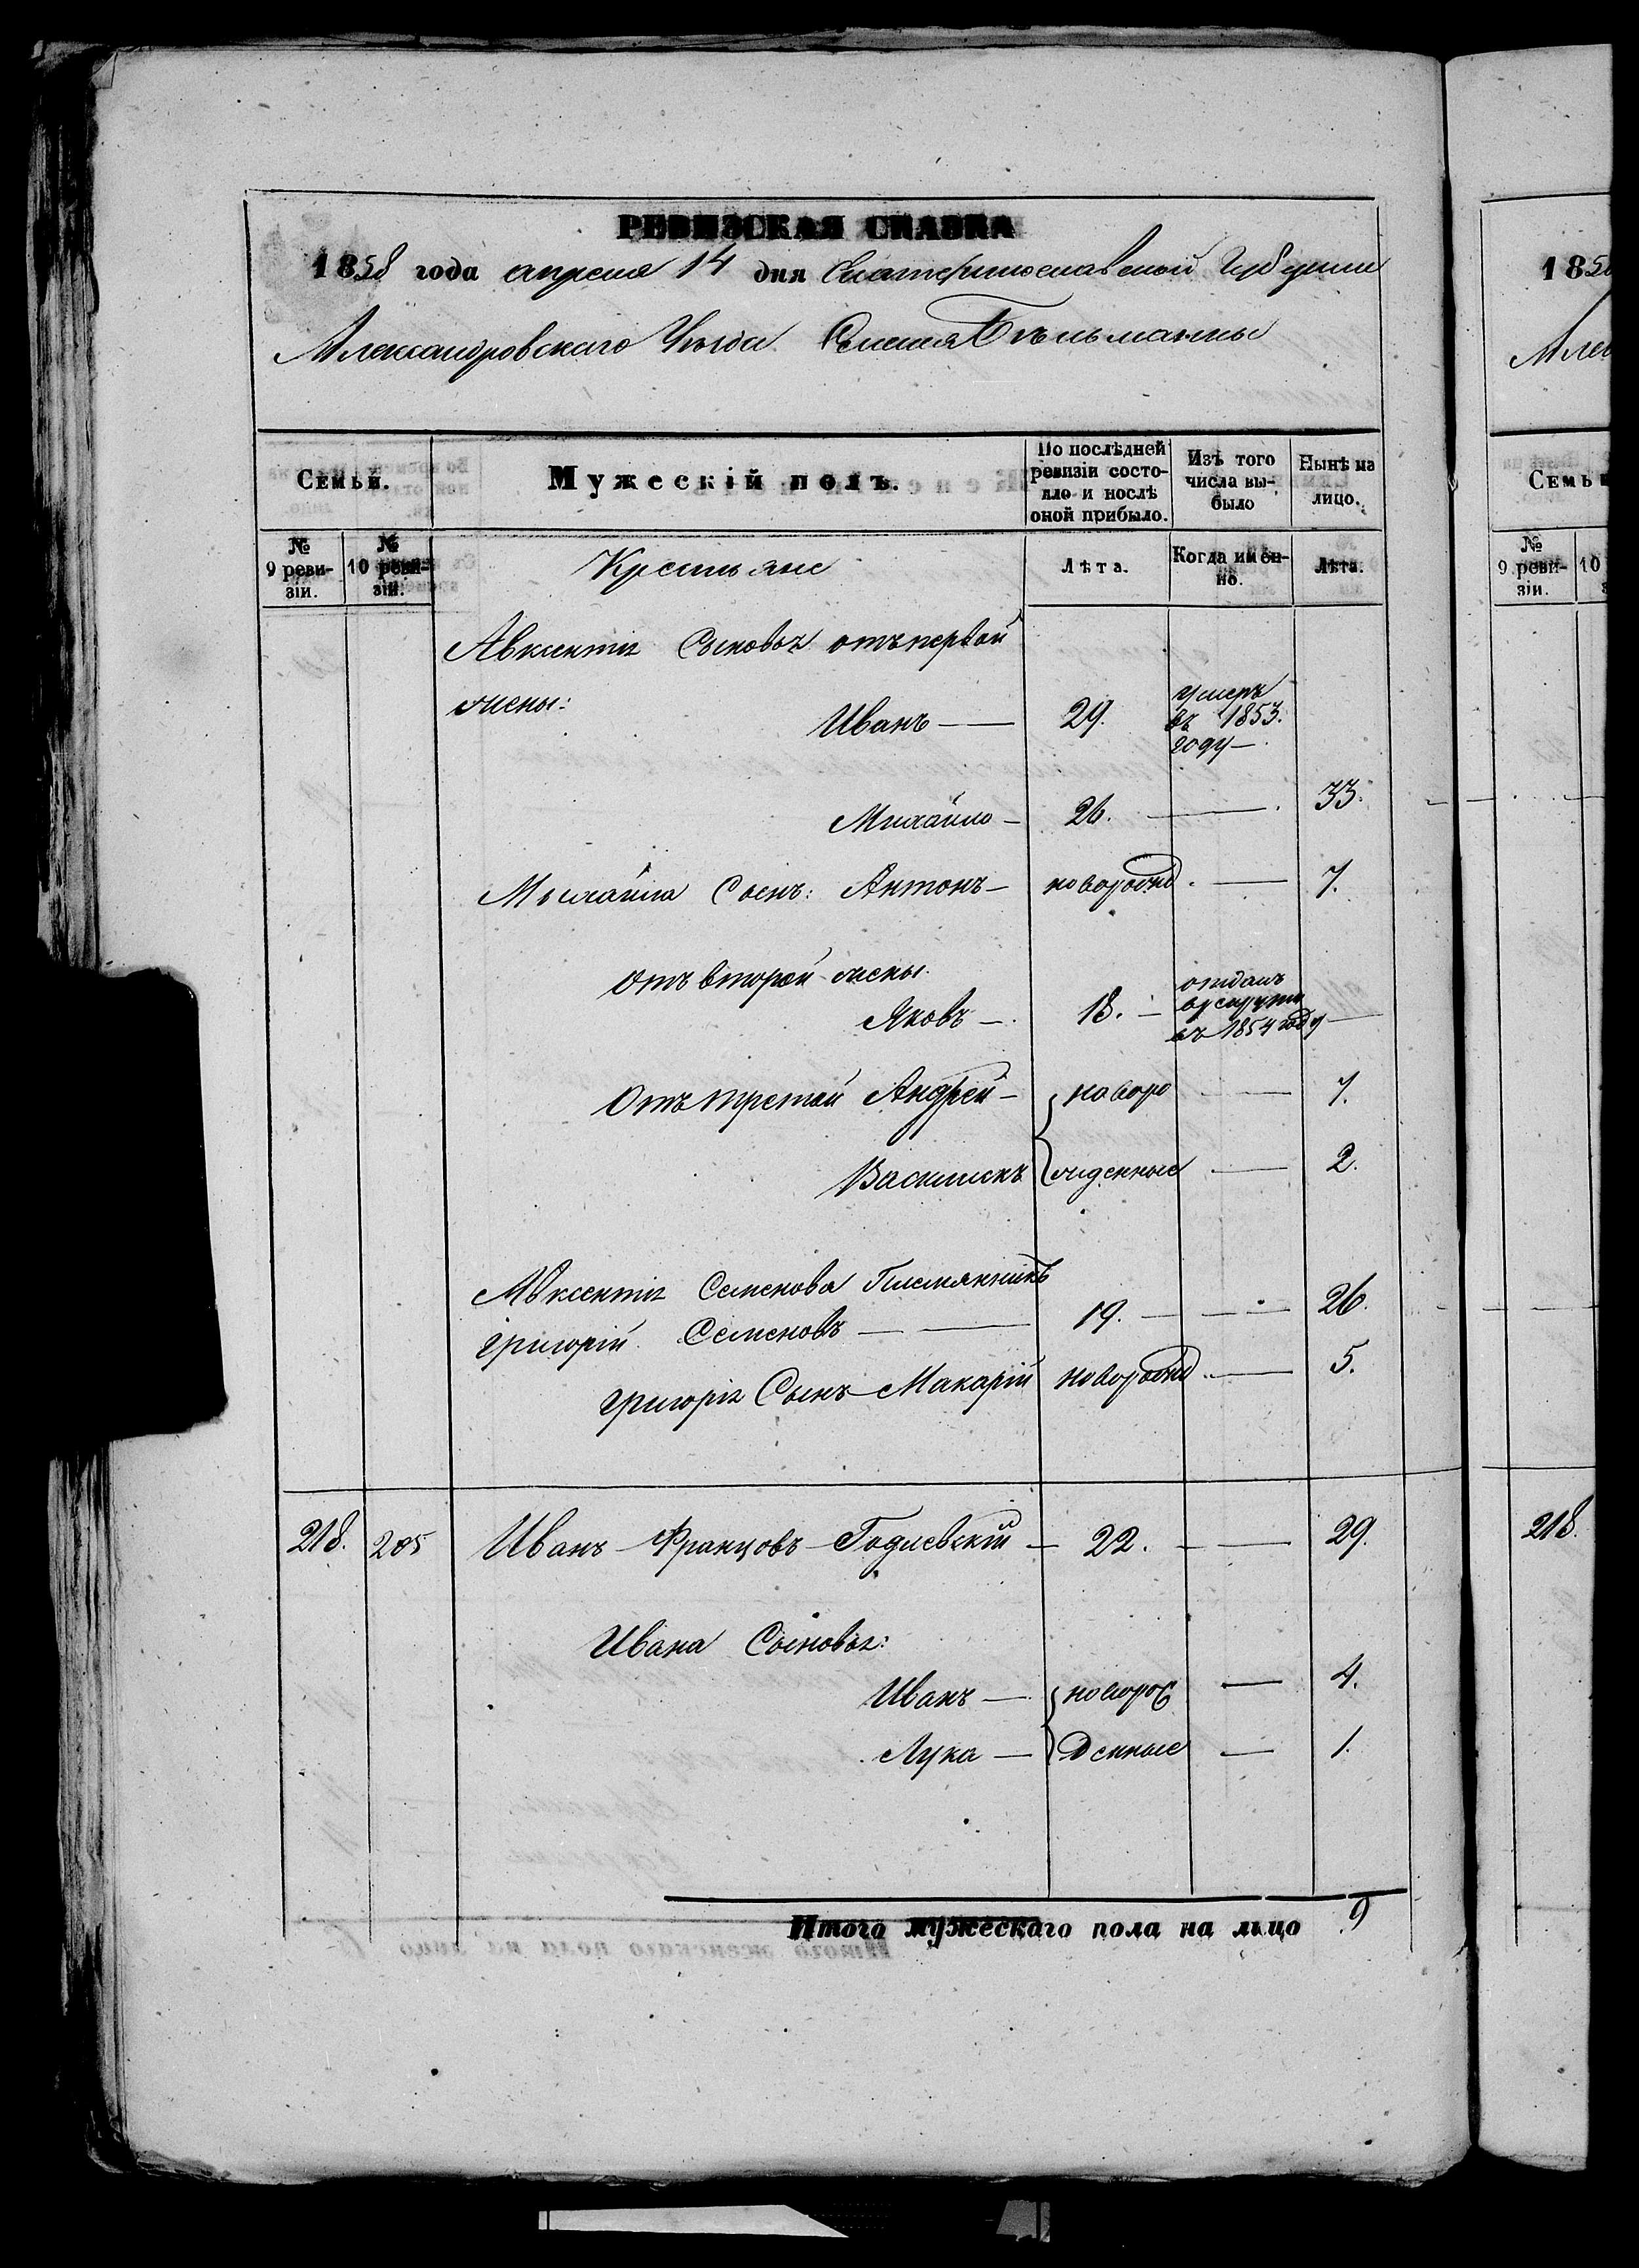 РЕВИЗСКАЯ СКАЗКА
1858 года апреля 14 дня Екатеринославской Губернии
Александровскаго Уезда Селения Бѣльманки
Семьи.
Мужескій полъ.
По послѣдней ревизіи состо-
яло и послѣ
оной прибыло.
Изъ того
числа вы-
было
Нынѣ на
лицо.
№
9 реви-
зіи.
№
10 реви-
зіи.
Крестьяне
Лѣта.
Когда имен-
но.
Лѣта.
Авксентія Сыновья отъ первой
жены:
Иванъ — 29. умеръ
въ 1853.
году —
Михайло — 26. — 33.
Михайла Сынъ: Антонъ — новорожд. — 7.
Отъ второй жены.
Яковъ — 18. — отданъ
в рекруты
въ 1854 году —
Отъ третей Андрей — новоро — 7.
Василій жденные — 2.
Авксентія Семенова Племянникъ
Григорій Семеновъ — 19. — 26.
Григорія Сынъ Макарій новорожд. — 5.
218. 205 Иванъ Францовъ Годлевскій — 22. — 29.
Ивана Сыновья:
Иванъ — новорож — 4.
Лука — денные — 1.
Итого мужескаго пола на лицо 9
1858
Алек
Семьи
№
9 реви-
зіи.
10
218.